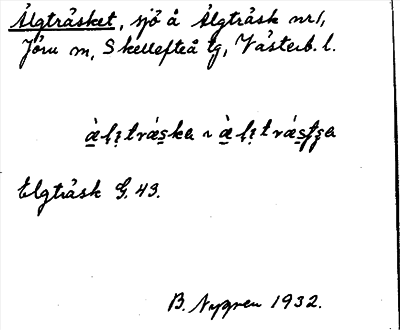 Älgträsket, sjö å Älgträsk nr 1,
Jörn sn, Skellefteå tg, Västerb. l.
à̱l̩ı̣träs̱ka ~ à̱l̩ı̣träs̱tʂa
Elgträsk G. 43.
B. Nygren 1932.